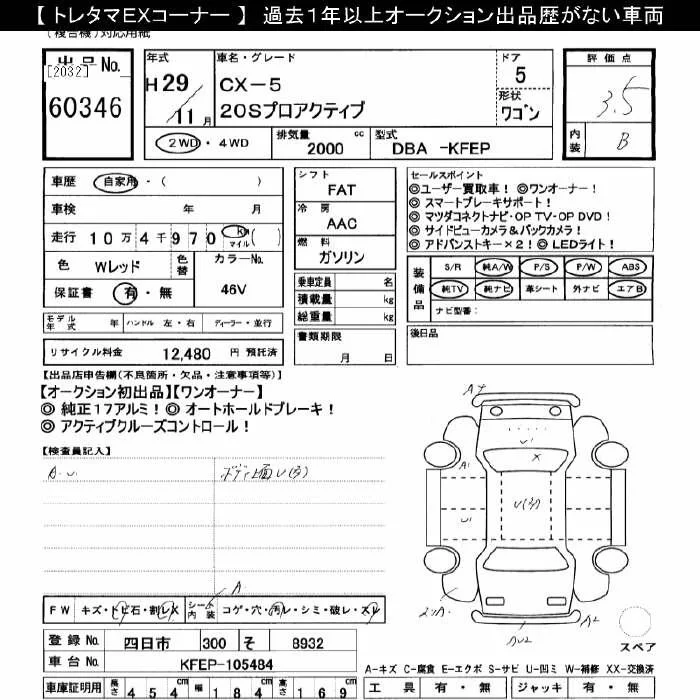 【 トレタマEXコーナー 】 過去１年以上オークション出品歴がない車両
(複合機)対応用紙
出品No.
[2032]
60346
年式
H 29
11 月
車名・グレード
CX-5
20Sプロアクティブ
ドア
5
形状
ワゴン
2WD ・ 4WD
排気量 cc
2000
型式
DBA -KFEP
評価点
3.5
内装
B
車歴 自家用・( )
車検 年 月
走行 10万4千970 km マイル ( )
色 Wレッド 色替 カラーNo.
保証書 有・無 46V
シフト
FAT
冷房
AAC
燃料
ガソリン
乗車定員 名
積載量 kg
総重量 kg
書類期限
月 日
セールスポイント
◎ユーザー買取車！ ◎ワンオーナー！
◎ スマートブレーキサポート！
◎ マツダコネクトナビ・OP TV・OP DVD！
◎ サイドビューカメラ＆バックカメラ！
◎ アドバンストキー×２！◎ LEDライト！
装備品
S/R 純A/W P/S P/W ABS
純TV 純ナビ 革シート 外ナビ エアB
ナビ型番：
後日品
モデル年式 年 ハンドル 左・右 ディーラー・並行
リサイクル料金 12,480 円 預託済
【出品店申告欄(不良箇所・欠品・注意事項等)】
【オークション初出品】【ワンオーナー】
◎ 純正１７アルミ！◎ オートホールドブレーキ！
◎ アクティブクルーズコントロール！
【検査員記入】
A.U.
ボディ上面U(多)
A
FW キズ・トビ石・割レX シート内装 コゲ・穴・汚レ・シミ・破レ・スレ
登録No. 四日市 300 そ 8932
車台No. KFEP-105484
車庫証明用 長さ 454cm 幅 184cm 高さ 169cm
A
U
X
A
U(多)
U
A2
スペア
A-キズ C-腐食 E-エクボ S-サビ U-凹ミ W-補修 XX-交換済
工具 有・無 ジャッキ 有・無